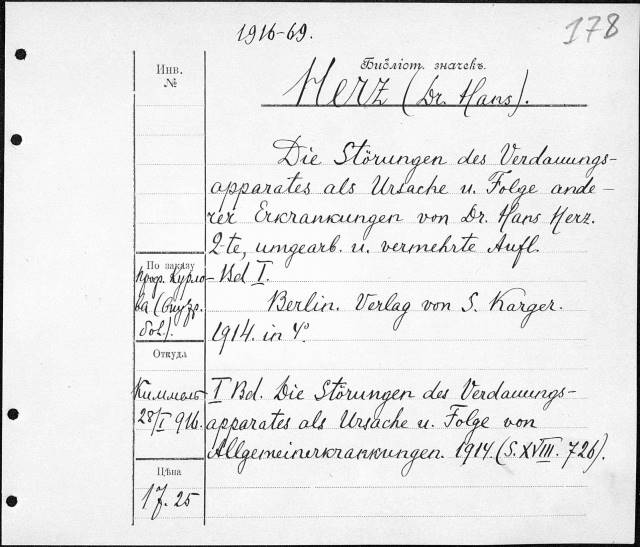 1916-69.
178
Инв.
№
Библіот. значекъ.
Herz (Dr. Hans).
Die Störungen des Verdauungs-
apparates als Ursache u. Folge ande-
rer Erkrankungen von Dr. Hans Herz.
2-te, umgearb. u. vermehrte Aufl.
Bd I.
Berlin. Verlag von S. Karger.
1914. in 4°.
По заказу
проф. Курло-
ва
бол.).
Откуда
Киммель
28/I 916.
I Bd. Die Störungen des Verdauungs-
apparates als Ursache u. Folge von
Allgemeinerkrankungen. 1914. (S. XVIII. 726).
Цѣна
17.25